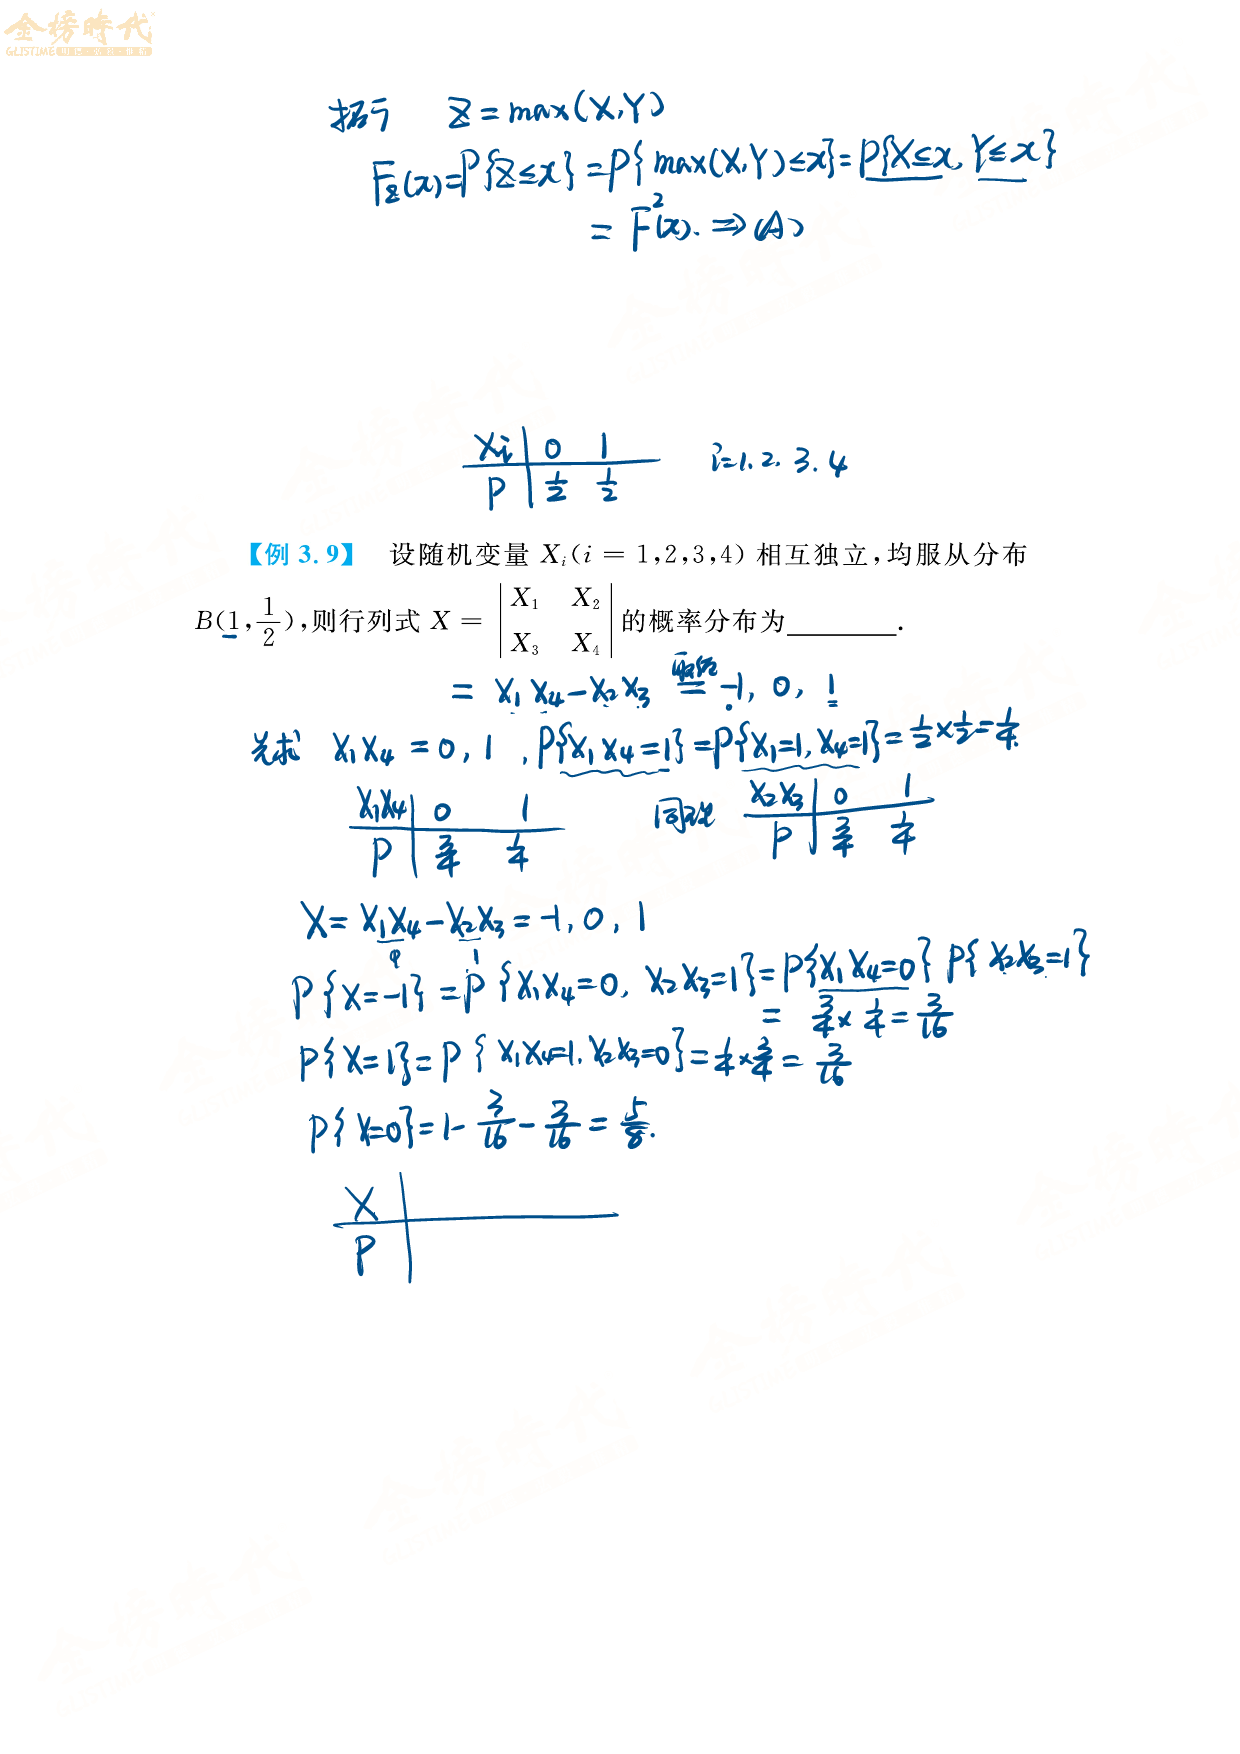 金榜時代
GLISTIME
Z = max(X,Y)
F_Z(x) = P{Z≤x} = P{max(X,Y)≤x} = P{X≤x, Y≤x}
= F²(x). ⇒ (A)
Xi | 0 1 i=1.2.3.4
P | 1/2 1/2
【例 3.9】 设随机变量 Xᵢ(i = 1,2,3,4) 相互独立,均服从分布
B(1, 1/2),则行列式 X = | X₁ X₂ ; X₃ X₄ | 的概率分布为________.
= X₁X₄ − X₂X₃ 取值 = -1, 0, 1
先求 X₁X₄ = 0, 1, P{X₁X₄=1} = P{X₁=1, X₄=1} = 1/2 × 1/2 = 1/4.
X₁X₄ | 0 1 同理 X₂X₃ | 0 1
P | 3/4 1/4 P | 3/4 1/4
X = X₁X₄ − X₂X₃ = -1, 0, 1
0 1
P{X=-1} = P{X₁X₄=0, X₂X₃=1} = P{X₁X₄=0} P{X₂X₃=1}
= 3/4 × 1/4 = 3/16
P{X=1} = P{X₁X₄=1, X₂X₃=0} = 1/4 × 3/4 = 3/16
P{X=0} = 1 - 3/16 - 3/16 = 5/8.
X |
P |